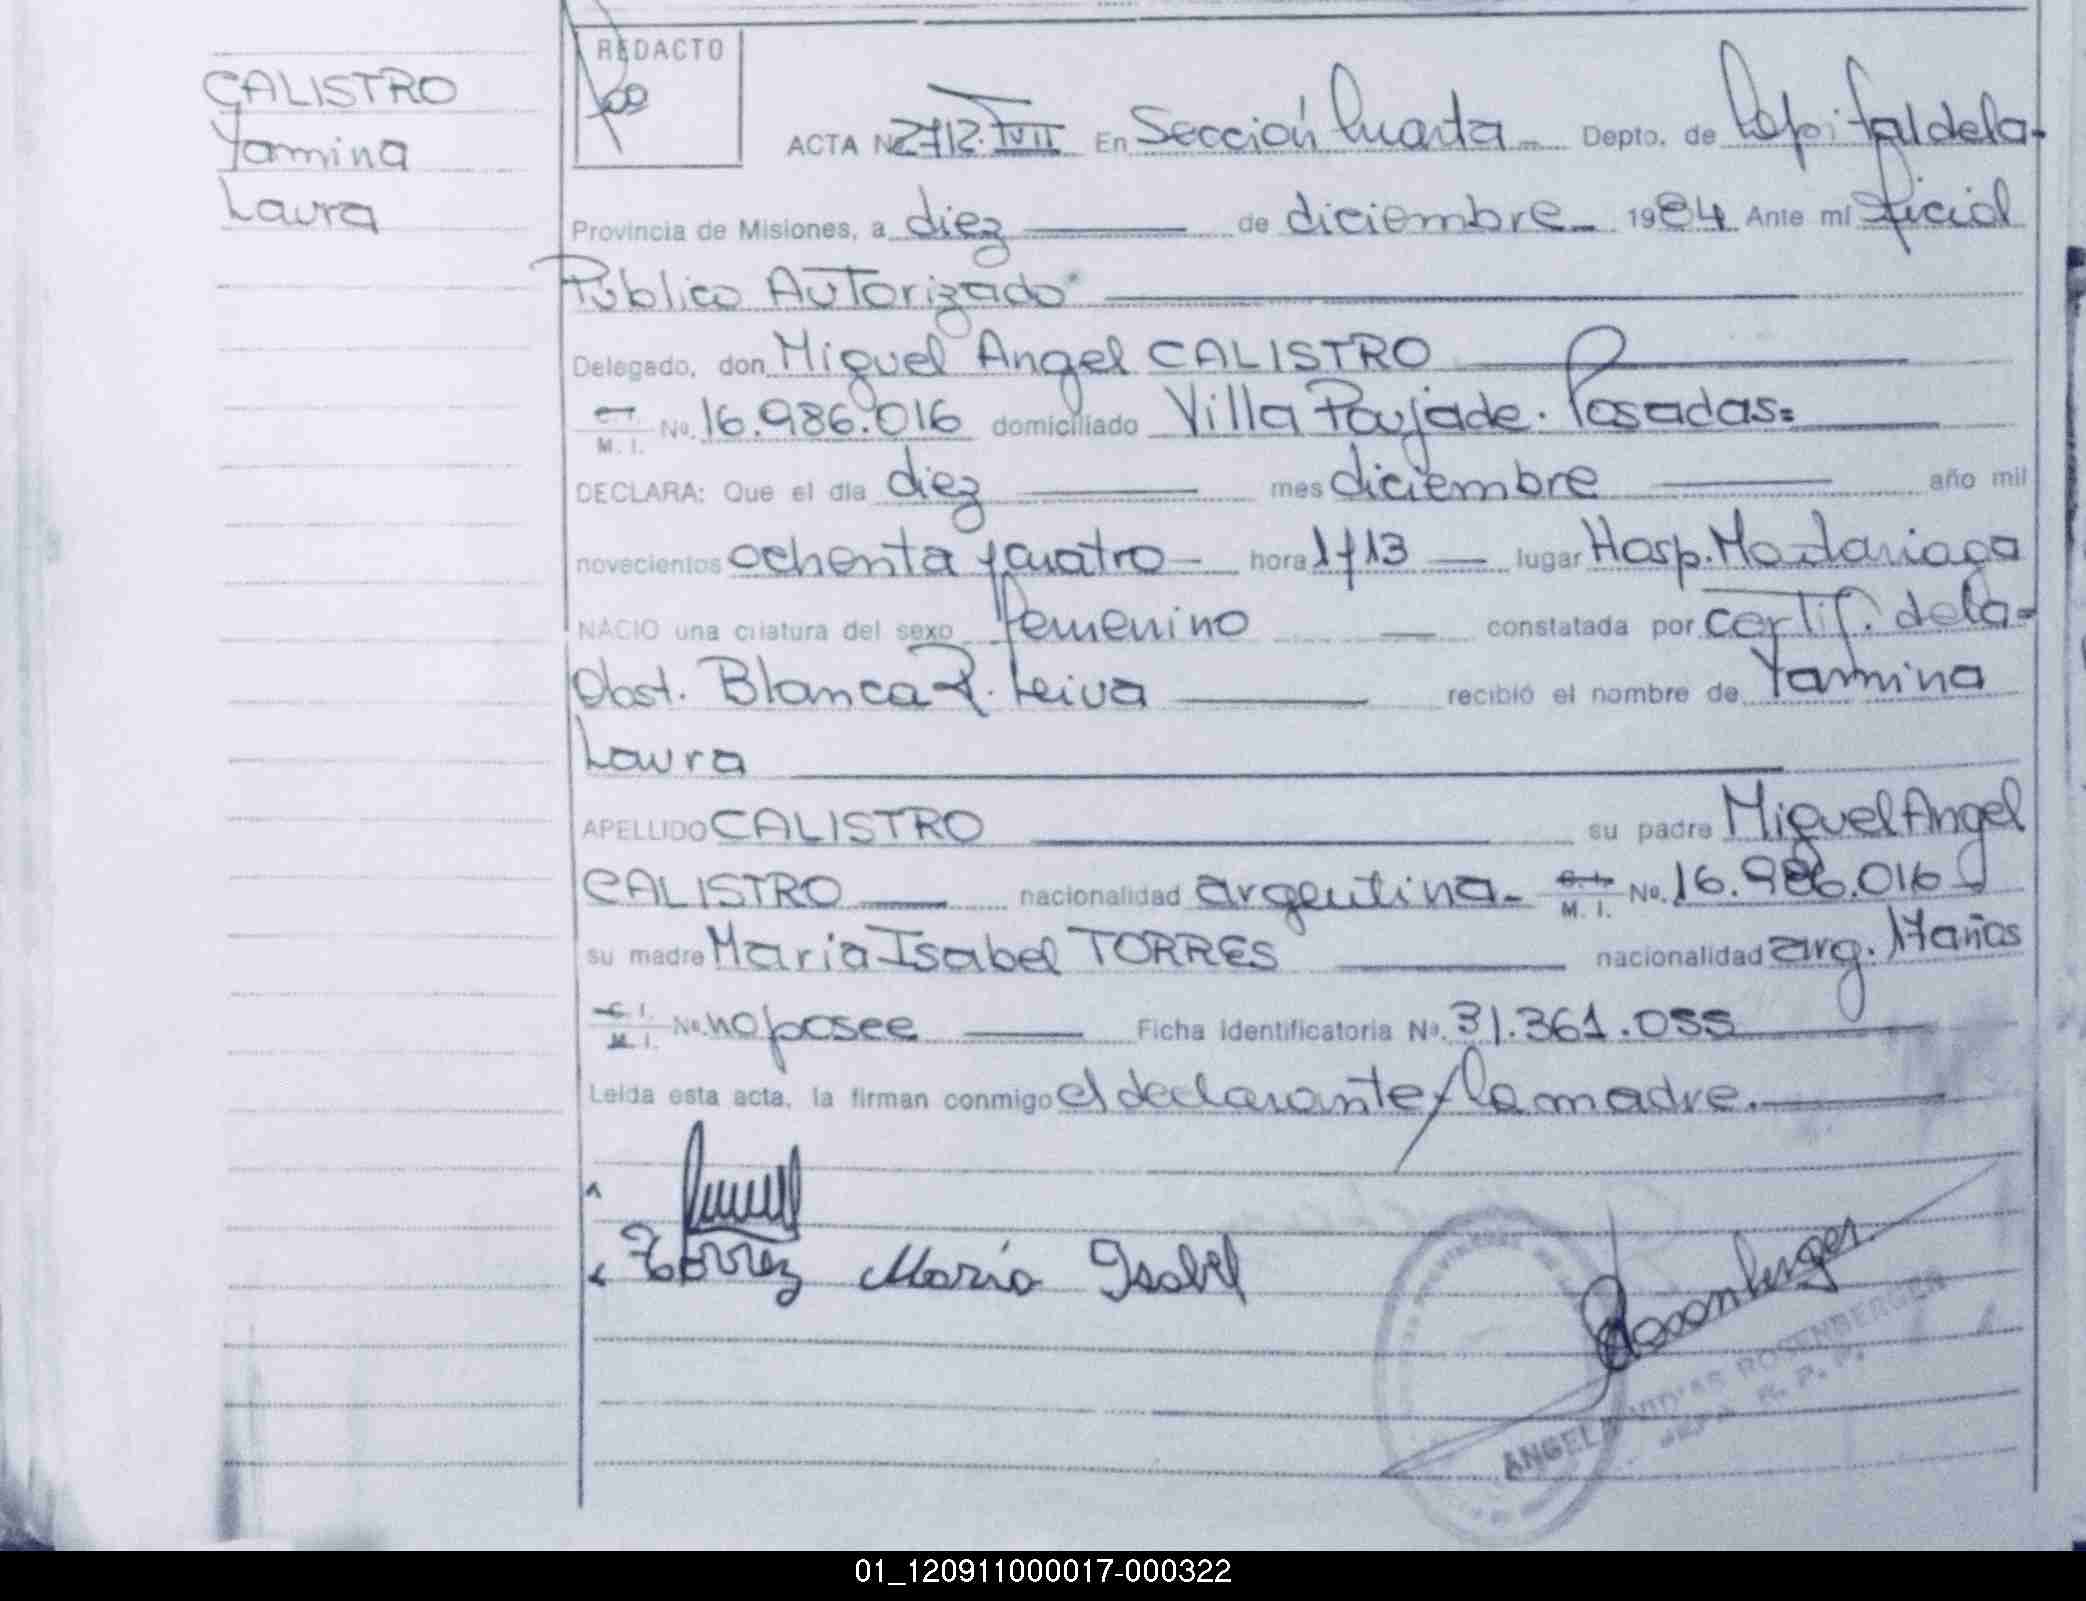 CALISTRO
Yamina
Laura
REDACTO
ACTA Nº 2712. TVII En Sección Cuarta Depto. de Capital dela-
Provincia de Misiones, a diez de diciembre 1984 Ante mí oficial
Publico Autorizado
Delegado, don Miguel Angel CALISTRO
M. I. Nº. 16.986.016 domiciliado Villa Poujade. Posadas=
DECLARA: Que el día diez mes diciembre año mil
novecientos ochenta y cuatro hora 1y13 lugar Hosp. Madariaga
NACIO una criatura del sexo femenino constatada por certif. dela-
Obst. Blanca R. Leiva recibió el nombre de Yamina
Laura
APELLIDO CALISTRO su padre Miguel Angel
CALISTRO nacionalidad argentina- C. I. M. I. Nº. 16.986.016
su madre Maria Isabel TORRES nacionalidad arg. 17 años
C. I. M. I. Nº. no posee Ficha identificatoria Nº. 31.361.055
Leída esta acta, la firman conmigo el declarante y la madre.
Torrez María Isabel
Rosenberger
ANGELA VIDIAS ROSENBERGER
JEFA R. P. P.
01_120911000017-000322